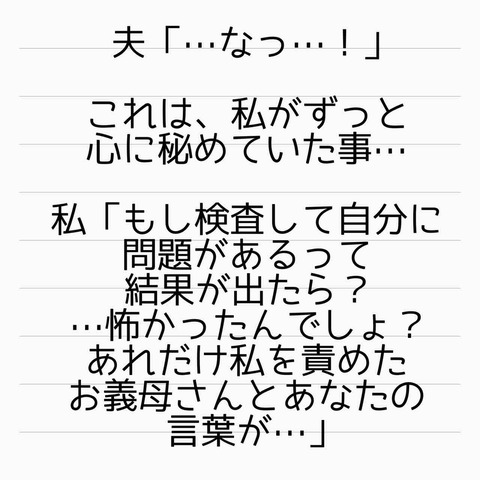 夫「…なっ…！」
これは、私がずっと
心に秘めていた事…
私「もし検査して自分に
問題があるって
結果が出たら？
…怖かったんでしょ？
あれだけ私を責めた
お義母さんとあなたの
言葉が…」